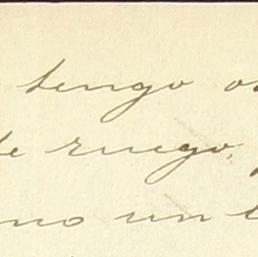 tengo
de ruego,
no un